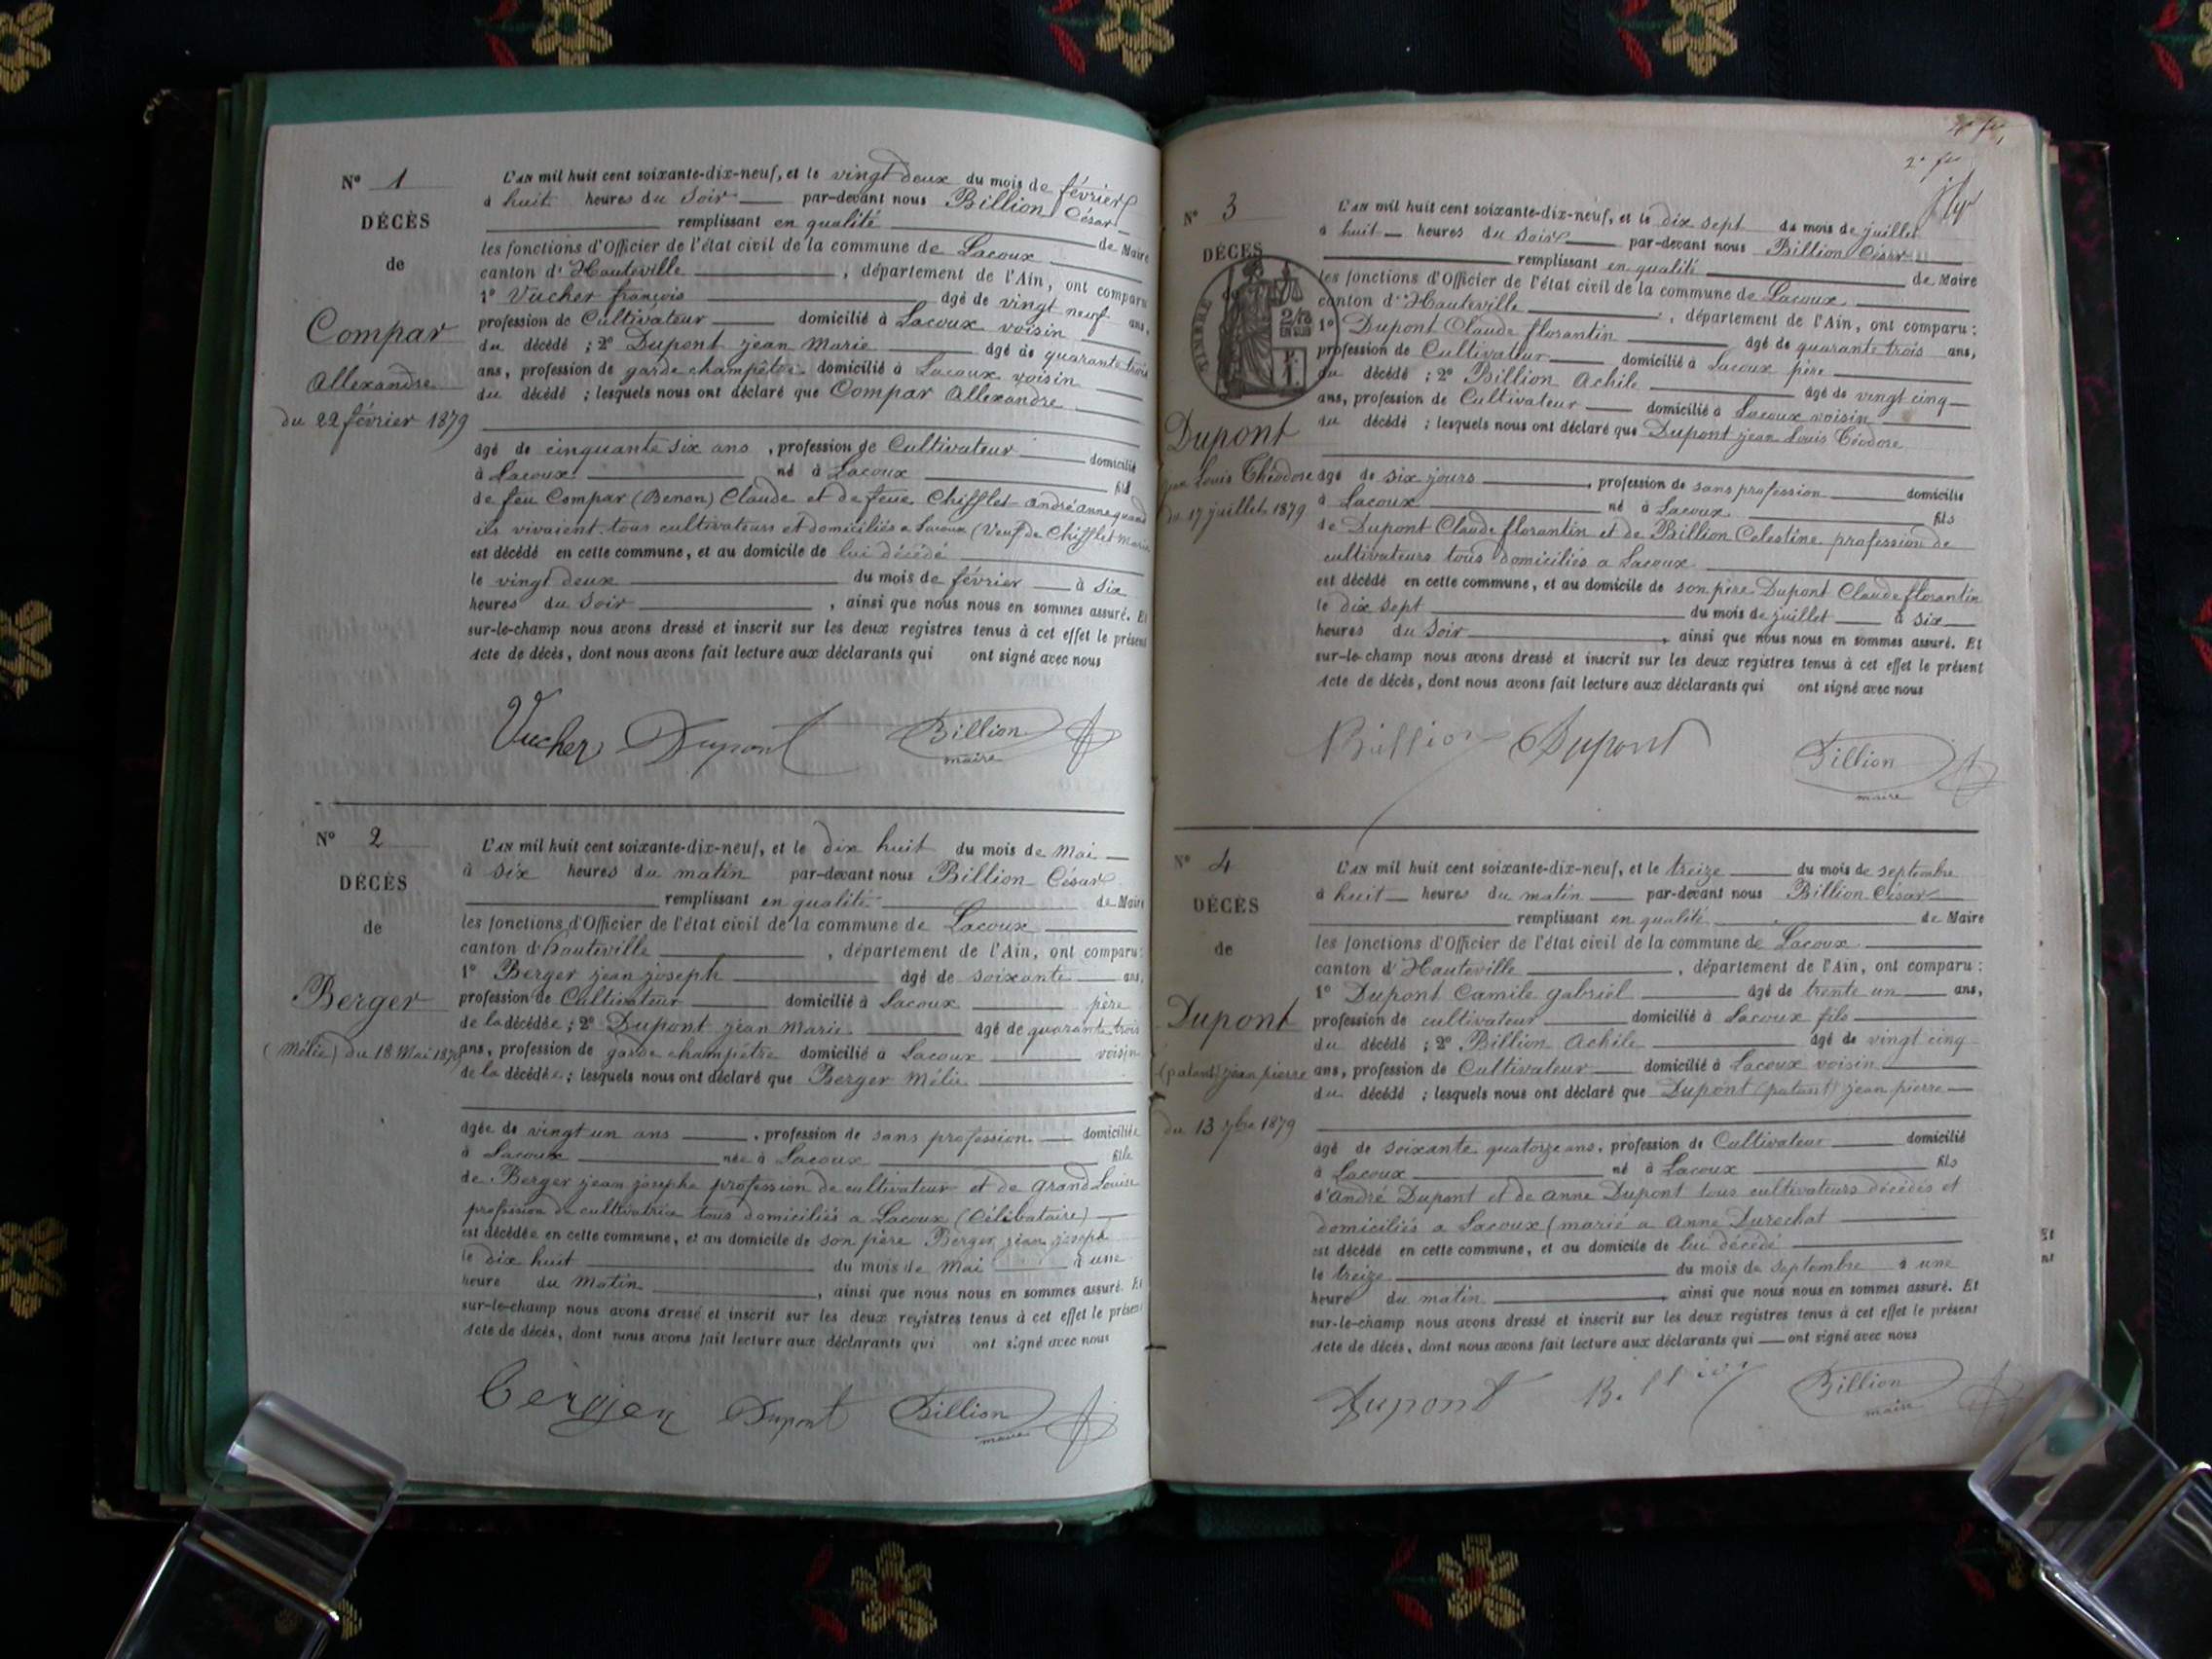 N° 1
DÉCÈS
de
Compar
Allexandre
du 22 février 1879
L'AN mil huit cent soixante-dix-neuf, et le vingt deux du mois de février
à huit heures du Soir par-devant nous Billion César
remplissant en qualité de Maire
les fonctions d'Officier de l'état civil de la commune de Lacoux
canton d'Hauteville, département de l'Ain, ont comparu
1° Vucher françois âgé de vingt neuf ans,
profession de Cultivateur domicilié à Lacoux voisin
du décédé ; 2° Dupont jean Marie âgé de quarante trois
ans, profession de garde champêtre domicilié à Lacoux voisin
du décédé ; lesquels nous ont déclaré que Compar Allexandre
âgé de cinquante six ans, profession de Cultivateur domicilié
à Lacoux né à Lacoux fils
de feu Compar (Benon) Claude et de feue Chifflet andré anne quand
ils vivaient tous cultivateurs et domiciliés a Lacoux (Veuf de Chifflet Marie
est décédé en cette commune, et au domicile de lui décédé
le vingt deux du mois de février à six
heures du Soir, ainsi que nous nous en sommes assuré. Et
sur-le-champ nous avons dressé et inscrit sur les deux registres tenus à cet effet le présent
Acte de décès, dont nous avons fait lecture aux déclarants qui ont signé avec nous
Vucher Dupont Billion
maire
N° 2
DÉCÈS
de
Berger
(Mélie) du 18 Mai 1879
L'AN mil huit cent soixante-dix-neuf, et le dix huit du mois de Mai
à six heures du matin par-devant nous Billion César
remplissant en qualité de Maire
les fonctions d'Officier de l'état civil de la commune de Lacoux
canton d'hauteville, département de l'Ain, ont comparu:
1° Berger jean joseph âgé de soixante ans,
profession de Cultivateur domicilié à Lacoux père
de la décédée ; 2° Dupont jean Marie âgé de quarante trois
ans, profession de garde champêtre domicilié à Lacoux voisin
de la décédée ; lesquels nous ont déclaré que Berger Mélie
âgée de vingt un ans, profession de sans profession domiciliée
à Lacoux née à Lacoux fille
de Berger jean josephe profession de cultivateur et de Grand Louise
profession de cultivatrice tous domiciliés a Lacoux (Célibataire)
est décédée en cette commune, et au domicile de son père Berger jean joseph
le dix huit du mois de Mai à une
heure du Matin, ainsi que nous nous en sommes assuré. Et
sur-le-champ nous avons dressé et inscrit sur les deux registres tenus à cet effet le présent
Acte de décès, dont nous avons fait lecture aux déclarants qui ont signé avec nous
Dupont Billion
maire
2e
N° 3
DÉCÈS
TIMBRE
Dupont
jean Louis Théodore
du 17 juillet 1879
L'AN mil huit cent soixante-dix-neuf, et le dix sept du mois de juillet
à huit heures du Soir par-devant nous Billion César
remplissant en qualité de Maire
les fonctions d'Officier de l'état civil de la commune de Lacoux
canton d'Hauteville, département de l'Ain, ont comparu :
1° Dupont Claude florantin âgé de quarante trois ans,
profession de Cultivateur domicilié à Lacoux père
du décédé ; 2° Billion Achile âgé de vingt cinq
ans, profession de Cultivateur domicilié à Lacoux voisin
du décédé ; lesquels nous ont déclaré que Dupont jean Louis Téodore
âgé de six jours, profession de sans profession domicilié
à Lacoux né à Lacoux fils
de Dupont Claude florantin et de Billion Celestine profession de
cultivateurs tous domiciliés a Lacoux
est décédé en cette commune, et au domicile de son père Dupont Claude florantin
le dix sept du mois de juillet à six
heures du Soir, ainsi que nous nous en sommes assuré. Et
sur-le-champ nous avons dressé et inscrit sur les deux registres tenus à cet effet le présent
Acte de décès, dont nous avons fait lecture aux déclarants qui ont signé avec nous
Billion Dupont Billion
maire
N° 4
DÉCÈS
de
Dupont
(patant) jean pierre
du 13 7bre 1879
L'AN mil huit cent soixante-dix-neuf, et le treize du mois de septembre
à huit heures du matin par-devant nous Billion César
remplissant en qualité de Maire
les fonctions d'Officier de l'état civil de la commune de Lacoux
canton d'Hauteville, département de l'Ain, ont comparu :
1° Dupont Camile gabriel âgé de trente un ans,
profession de cultivateur domicilié à Lacoux fils
du décédé ; 2° Billion Achile âgé de vingt cinq
ans, profession de Cultivateur domicilié à Lacoux voisin
du décédé ; lesquels nous ont déclaré que Dupont (patant) jean pierre
âgé de soixante quatorze ans, profession de Cultivateur domicilié
à Lacoux né à Lacoux fils
d'André Dupont et de anne Dupont tous cultivateurs décédés et
domiciliés a Lacoux (marié a anne Durochat
est décédé en cette commune, et au domicile de lui décédé
le treize du mois de septembre à une
heure du matin, ainsi que nous nous en sommes assuré. Et
sur-le-champ nous avons dressé et inscrit sur les deux registres tenus à cet effet le présent
Acte de décès, dont nous avons fait lecture aux déclarants qui ont signé avec nous
Dupont Billion Billion
maire